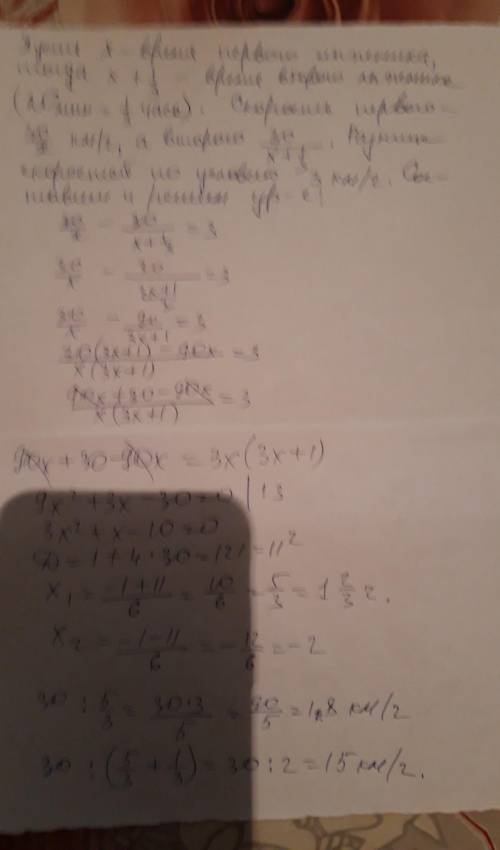 Пусть x - время первого
тогда x + 1/3 - время второго
(20 мин = 1/3 часа). Скорость первого -
30/x км/ч, а второго 30/(x + 1/3).
скоростей по условию 3 км/ч. Сос-
тавим и решим ур-е
30/x - 30/(x + 1/3) = 3
30/x - 30/((3x+1)/3) = 3
30/x - 90/(3x+1) = 3
(30(3x+1) - 90x)/(x(3x+1)) = 3
(90x + 30 - 90x)/(x(3x+1)) = 3
90x + 30 - 90x = 3x(3x+1)
9x² + 3x - 30 = 0 | :3
3x² + x - 10 = 0
D = 1 + 4·30 = 121 = 11²
x₁ = (-1+11)/6 = 10/6 = 5/3 = 1 2/3 ч.
x₂ = (-1-11)/6 = -12/6 = -2
30 : 5/3 = 30·3/5 = 90/5 = 18 км/ч
30 : (5/3 + 1/3) = 30 : 2 = 15 км/ч.